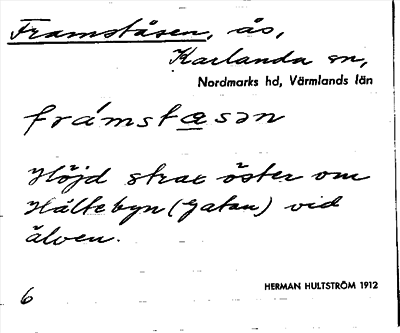 Framståsen, ås,
Karlanda sn,
Nordmarks hd, Värmlands län
frámstasən
Höjd strax öster om
Hältebyn (Gatan) vid
älven.
HERMAN HULTSTRÖM 1912
6